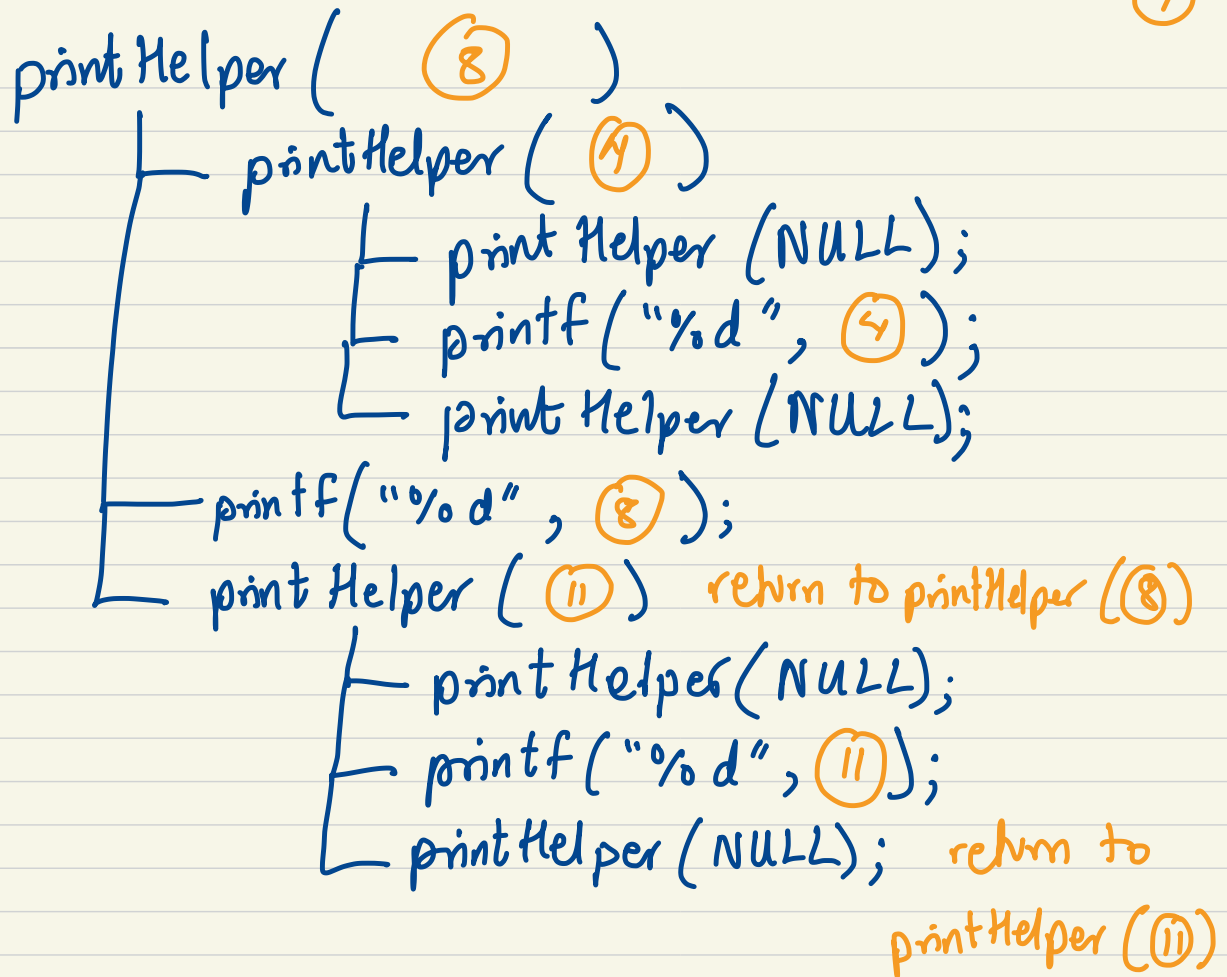 printHelper ( 8 )
printHelper ( 4 )
printHelper (NULL);
printf ("%d", 4);
printHelper (NULL);
printf ("%d", 8);
printHelper ( 11 ) return to printHelper (8)
printHelper (NULL);
printf ("%d", 11);
printHelper (NULL); return to
printHelper (11)